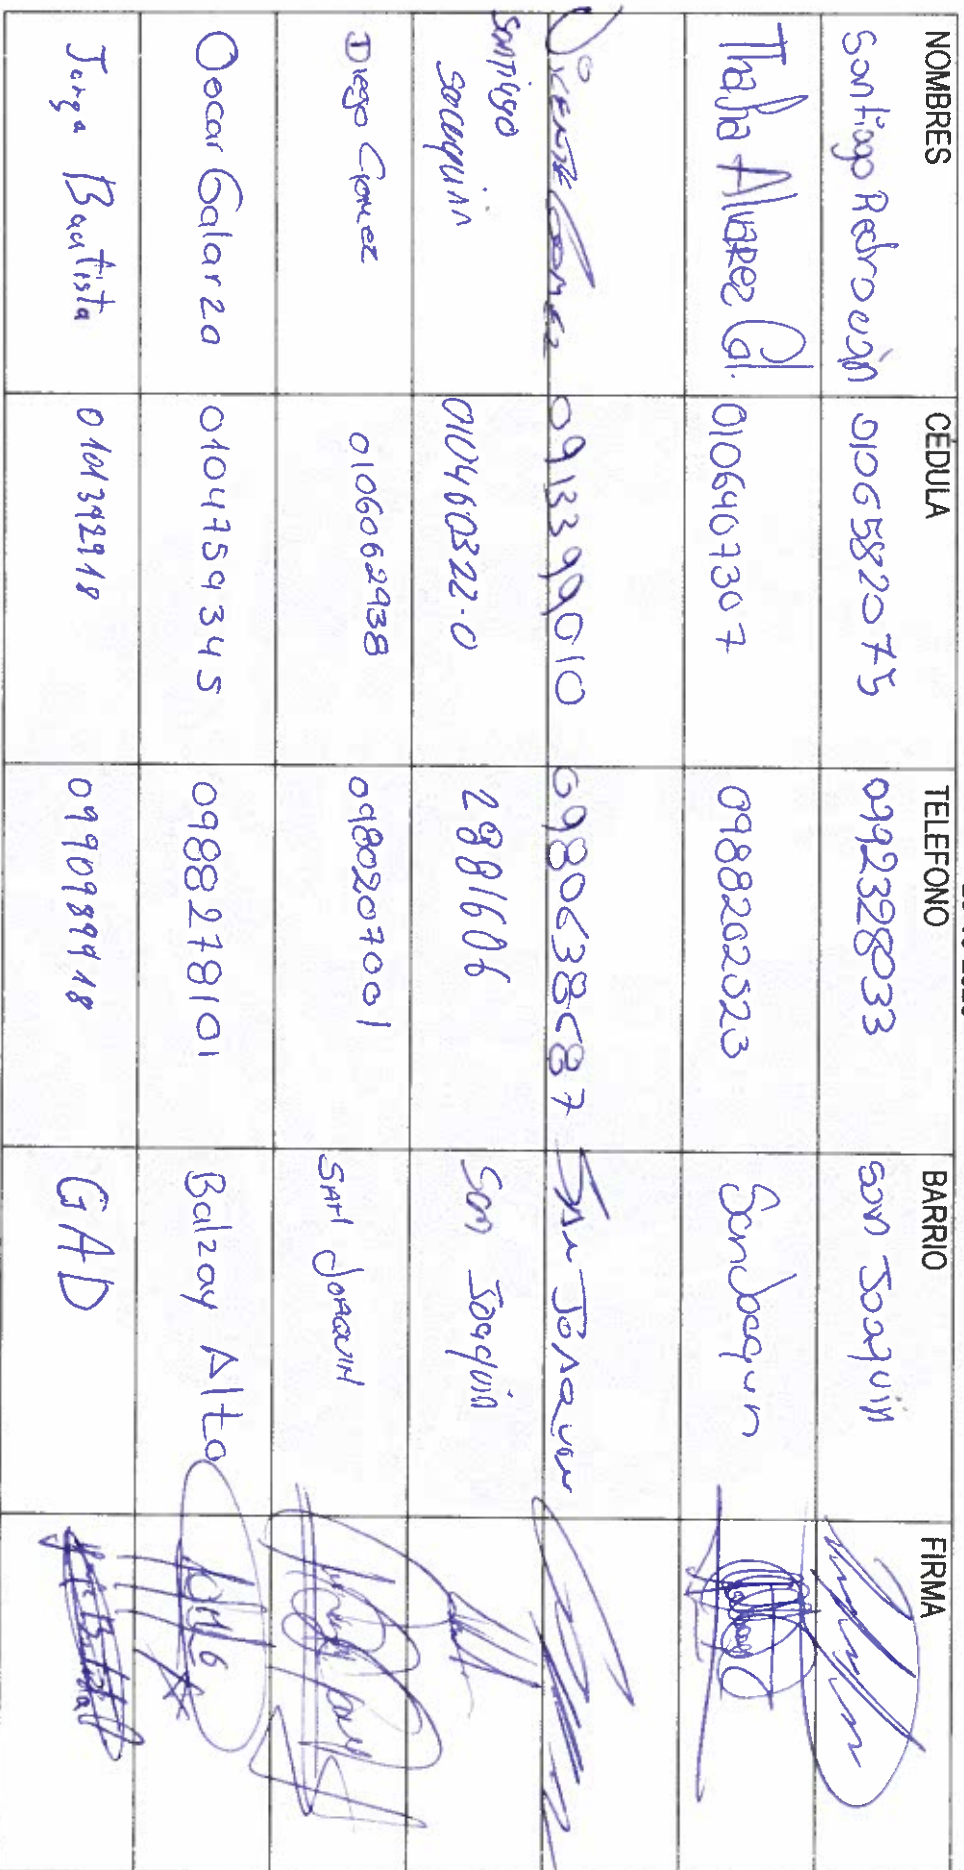 NOMBRES CÉDULA TELEFONO BARRIO FIRMA
Santiago Pedrouzán 0106582075 0992328033 San Joaquin
Thalia Alvarez Cal. 0106407307 0988202523 San Joaqun
Vicente Gomez 0913399010 0980638687 San Joaquin
Santiago 010460322-0 2881606 San Joaquin
Diego Gomez 0106062938 0980207001 SAN JOAQUIN
Oscar Galarza 0104759345 0988278101 Balzay Alto
Jorge Bautista 0101392918 0990989918 GAD